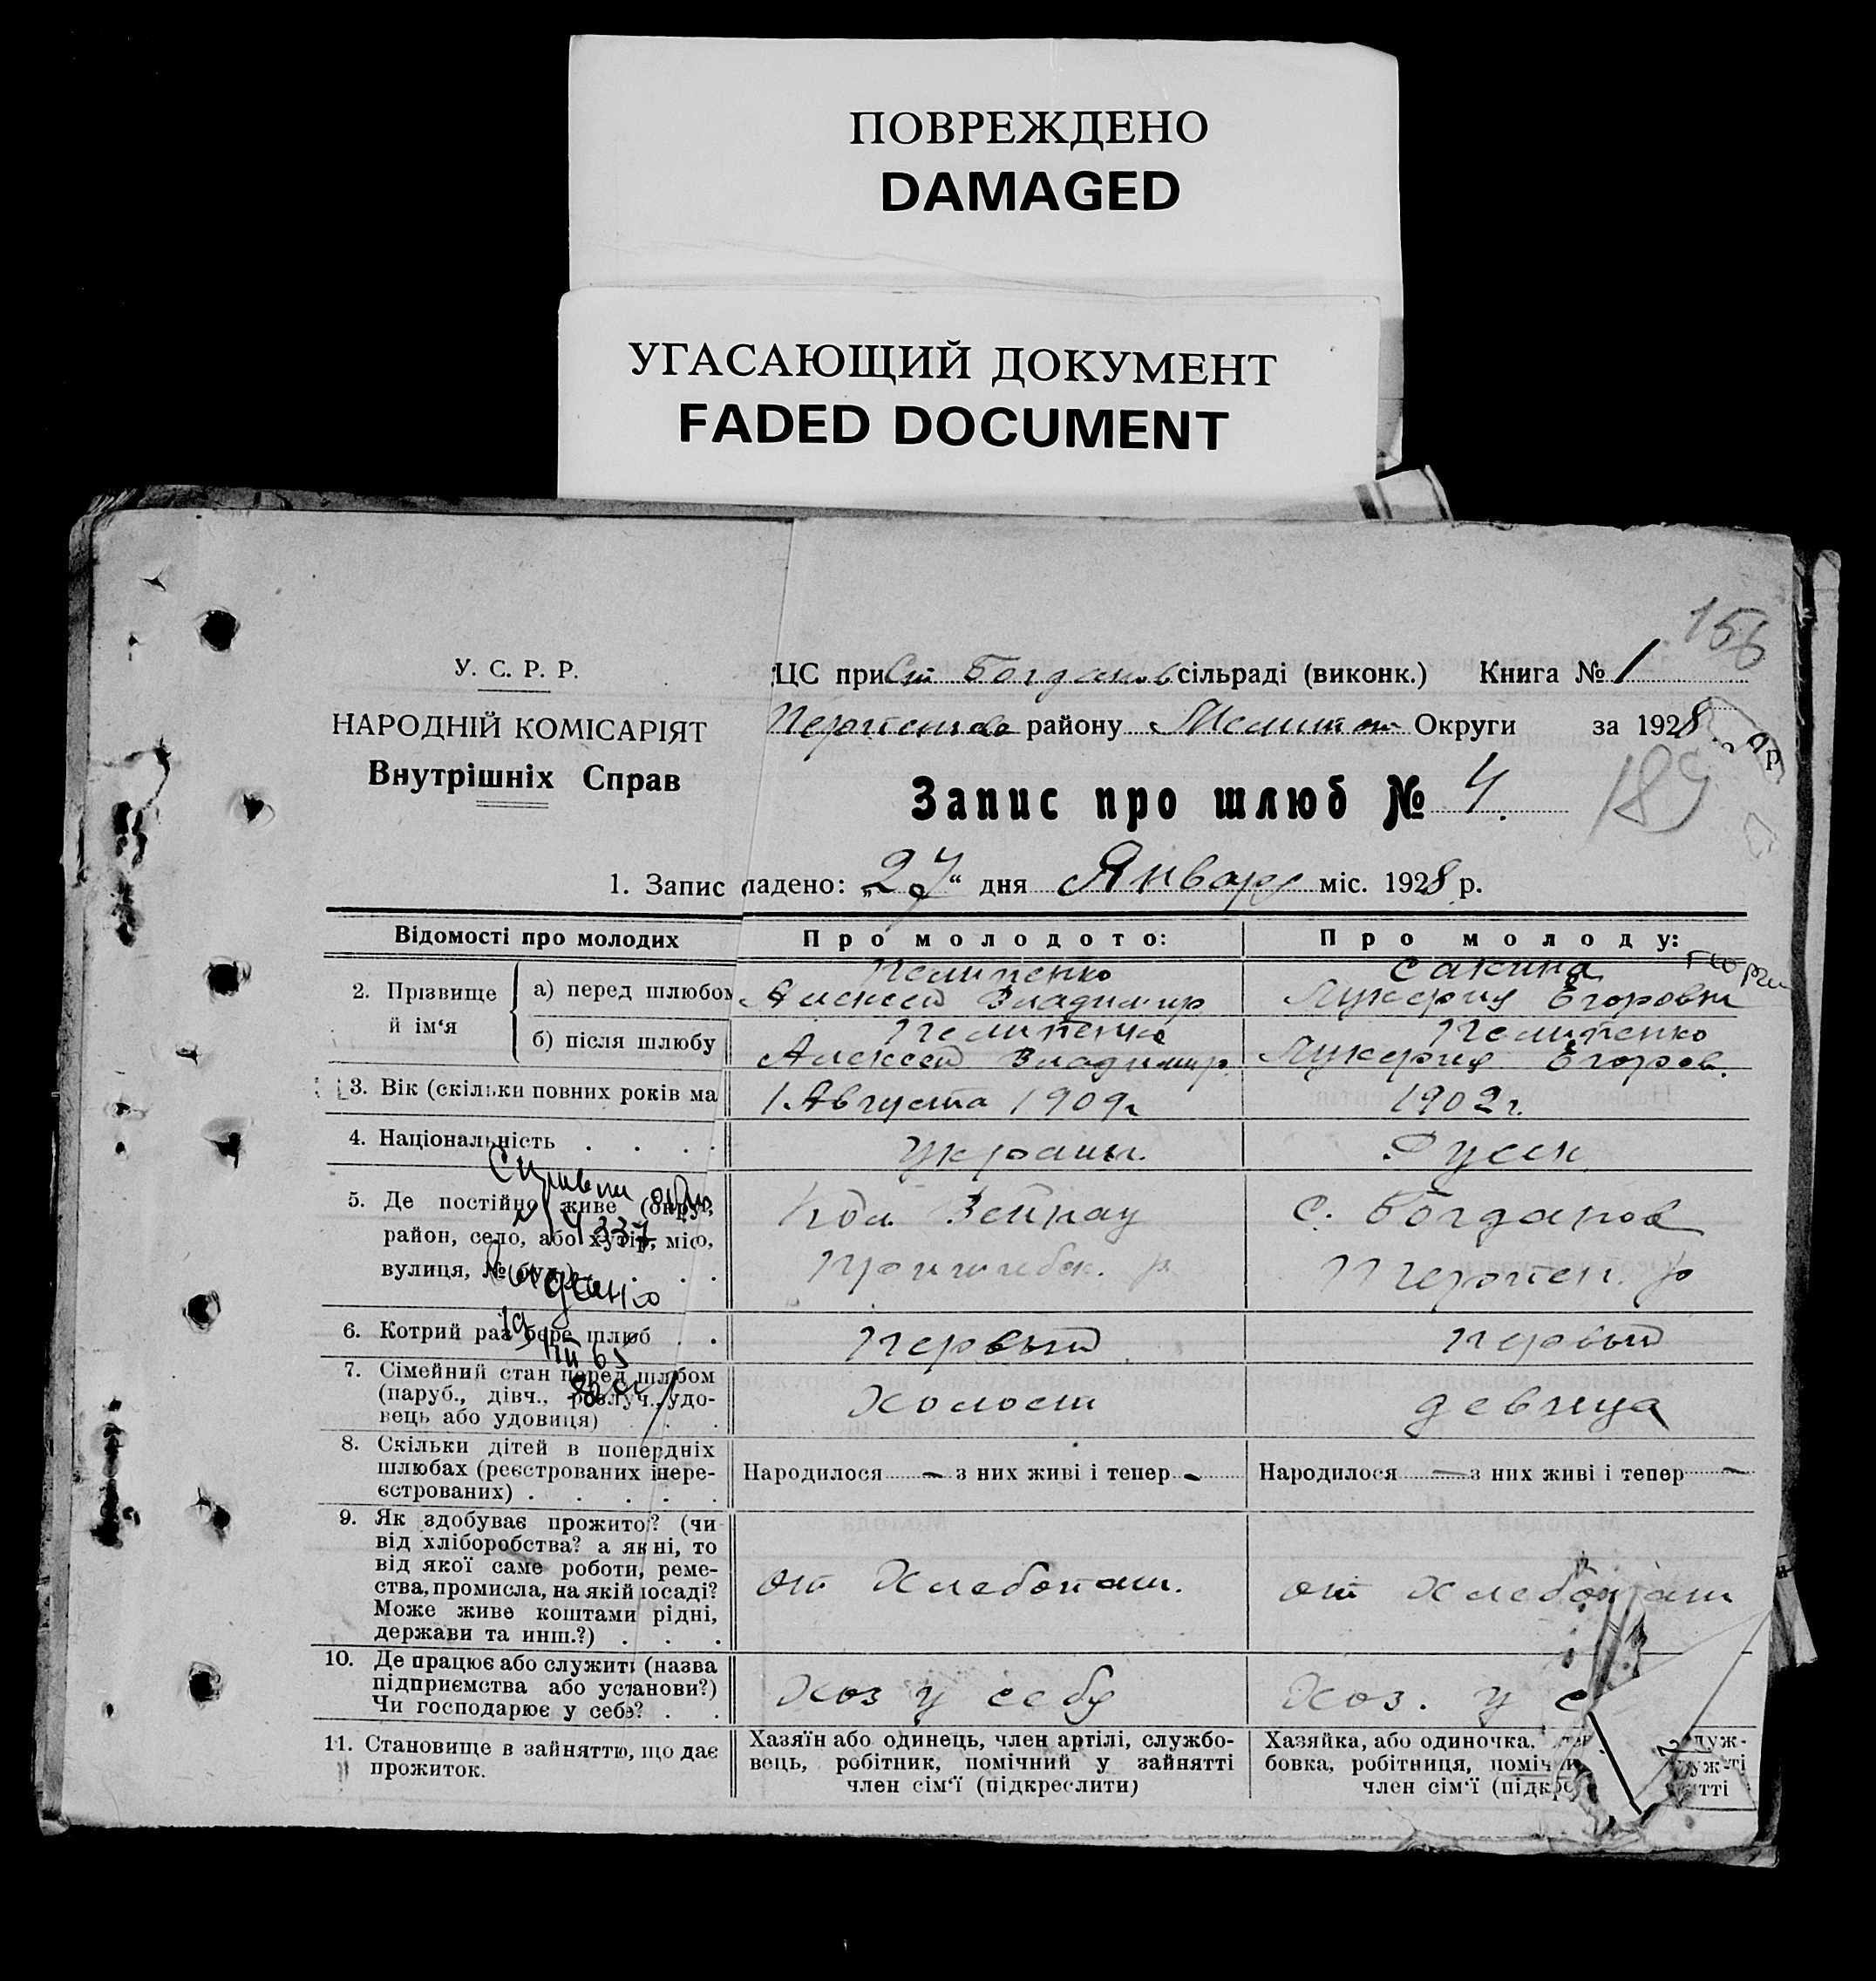 ПОВРЕЖДЕНО
DAMAGED
УГАСАЮЩИЙ ДОКУМЕНТ
FADED DOCUMENT
156
У. С. Р. Р.
НАРОДНІЙ КОМІСАРІЯТ
Внутрішніх Справ
ЦС при Ст Богданов сільраді (виконк.) Книга № 1
району Мелитоп Округи за 1928 р
189
Запис про шлюб № 4.
1. Запис ладено: „27“ дня Январе міс. 1928 р.
Відомості про молодих
Про молодого:
Про молоду:
2. Прізвище й ім‘я
а) перед шлюбом
Пелипенко
Алексей Владимир
Сакина
Лукерия Егоровн
б) після шлюбу
Пелипенко
Алексей Владимир.
Пелипенко
Лукерия Егоров.
3. Вік (скільки повних років ма
1. Августа 1909 г
1902 г.
4. Національність . . . .
Украин.
Русск
5. Де постійно живе (округ,
район, село, або хутір, місто,
вулиця, № буд.) . . .
Кол. Вейнау
с. Богданов
6. Котрий раз бере шлюб . .
Первый
первый
7. Сімейний стан перед шлюбом
(паруб., дівч., розлуч., удо-
вець або удовиця) . . .
Холост
девица
8. Скільки дітей в попердніх
шлюбах (реєстрованих і нере-
єстрованих) . . . . .
Народилося — з них живі і тепер -
Народилося — з них живі і тепер —
9. Як здобуває прожиток? (чи
від хліборобства? а як ні, то
від якої саме роботи, реме-
ства, промисла, на якій посаді?
Може живе коштами рідні,
держави та инш.?) . . .
от Хлебопаш.
от Хлебопаш
10. Де працює або служить (назва
підприємства або установи?)
Чи господарює у себе? . .
Хоз у себе
Хоз. у с
11. Становище в зайняттю, що дає
прожиток.
Хазяїн або одинець, член артілі, службо-
вець, робітник, помічний у зайнятті
член сім‘ї (підкреслити)
Хазяйка, або одиночка,
бовка, робітниця, поміч
член сім‘ї (підкре